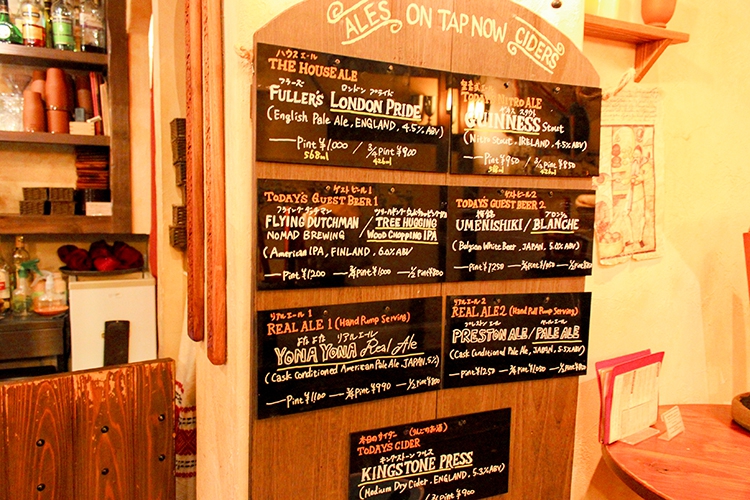 ALES ON TAP NOW CIDERS
ハウスエール
THE HOUSE ALE
フラーズ ロンドン プライド
FULLER'S LONDON PRIDE
(English Pale Ale, ENGLAND, 4.5% ABV)
Pint ¥1,000 / 3/4 Pint ¥900
568ml 426ml
NITRO ALE
GUINNESS Stout
(Nitro Stout, IRELAND, 4.5% ABV)
Pint ¥950 / 3/4 Pint ¥850
ゲストビール1
TODAY'S GUEST BEER 1
フライング ダッチマン
FLYING DUTCHMAN / TREE HUGGING
NOMAD BREWING / WOOD CHOPPING IPA
(American IPA, FINLAND, 6.0% ABV)
Pint ¥1200 3/4 ¥1000 1/2 ¥800
ゲストビール2
TODAY'S GUEST BEER 2
梅錦 ブロンシュ
UMENISHIKI / BLANCHE
(Belgian White Beer, JAPAN, 5.0% ABV)
Pint ¥1250
リアルエール1
REAL ALE 1 (Hand Pump Serving)
リアルエール
YONA YONA Real Ale
(Cask Conditioned American Pale Ale, JAPAN, 5%)
Pint ¥1100 3/4 ¥990 1/2
リアルエール2
REAL ALE 2 (Hand Pull Pump Serving)
プレストンエール ペールエール
PRESTON ALE / PALE ALE
(Cask Conditioned Pale Ale, JAPAN, ABV)
Pint ¥1250 3/4 ¥1050
本日のサイダー (りんごのお酒)
TODAY'S CIDER
キングストーン プレス
KINGSTONE PRESS
(Medium Dry Cider, ENGLAND, 5.3% ABV)
3/4 ¥900